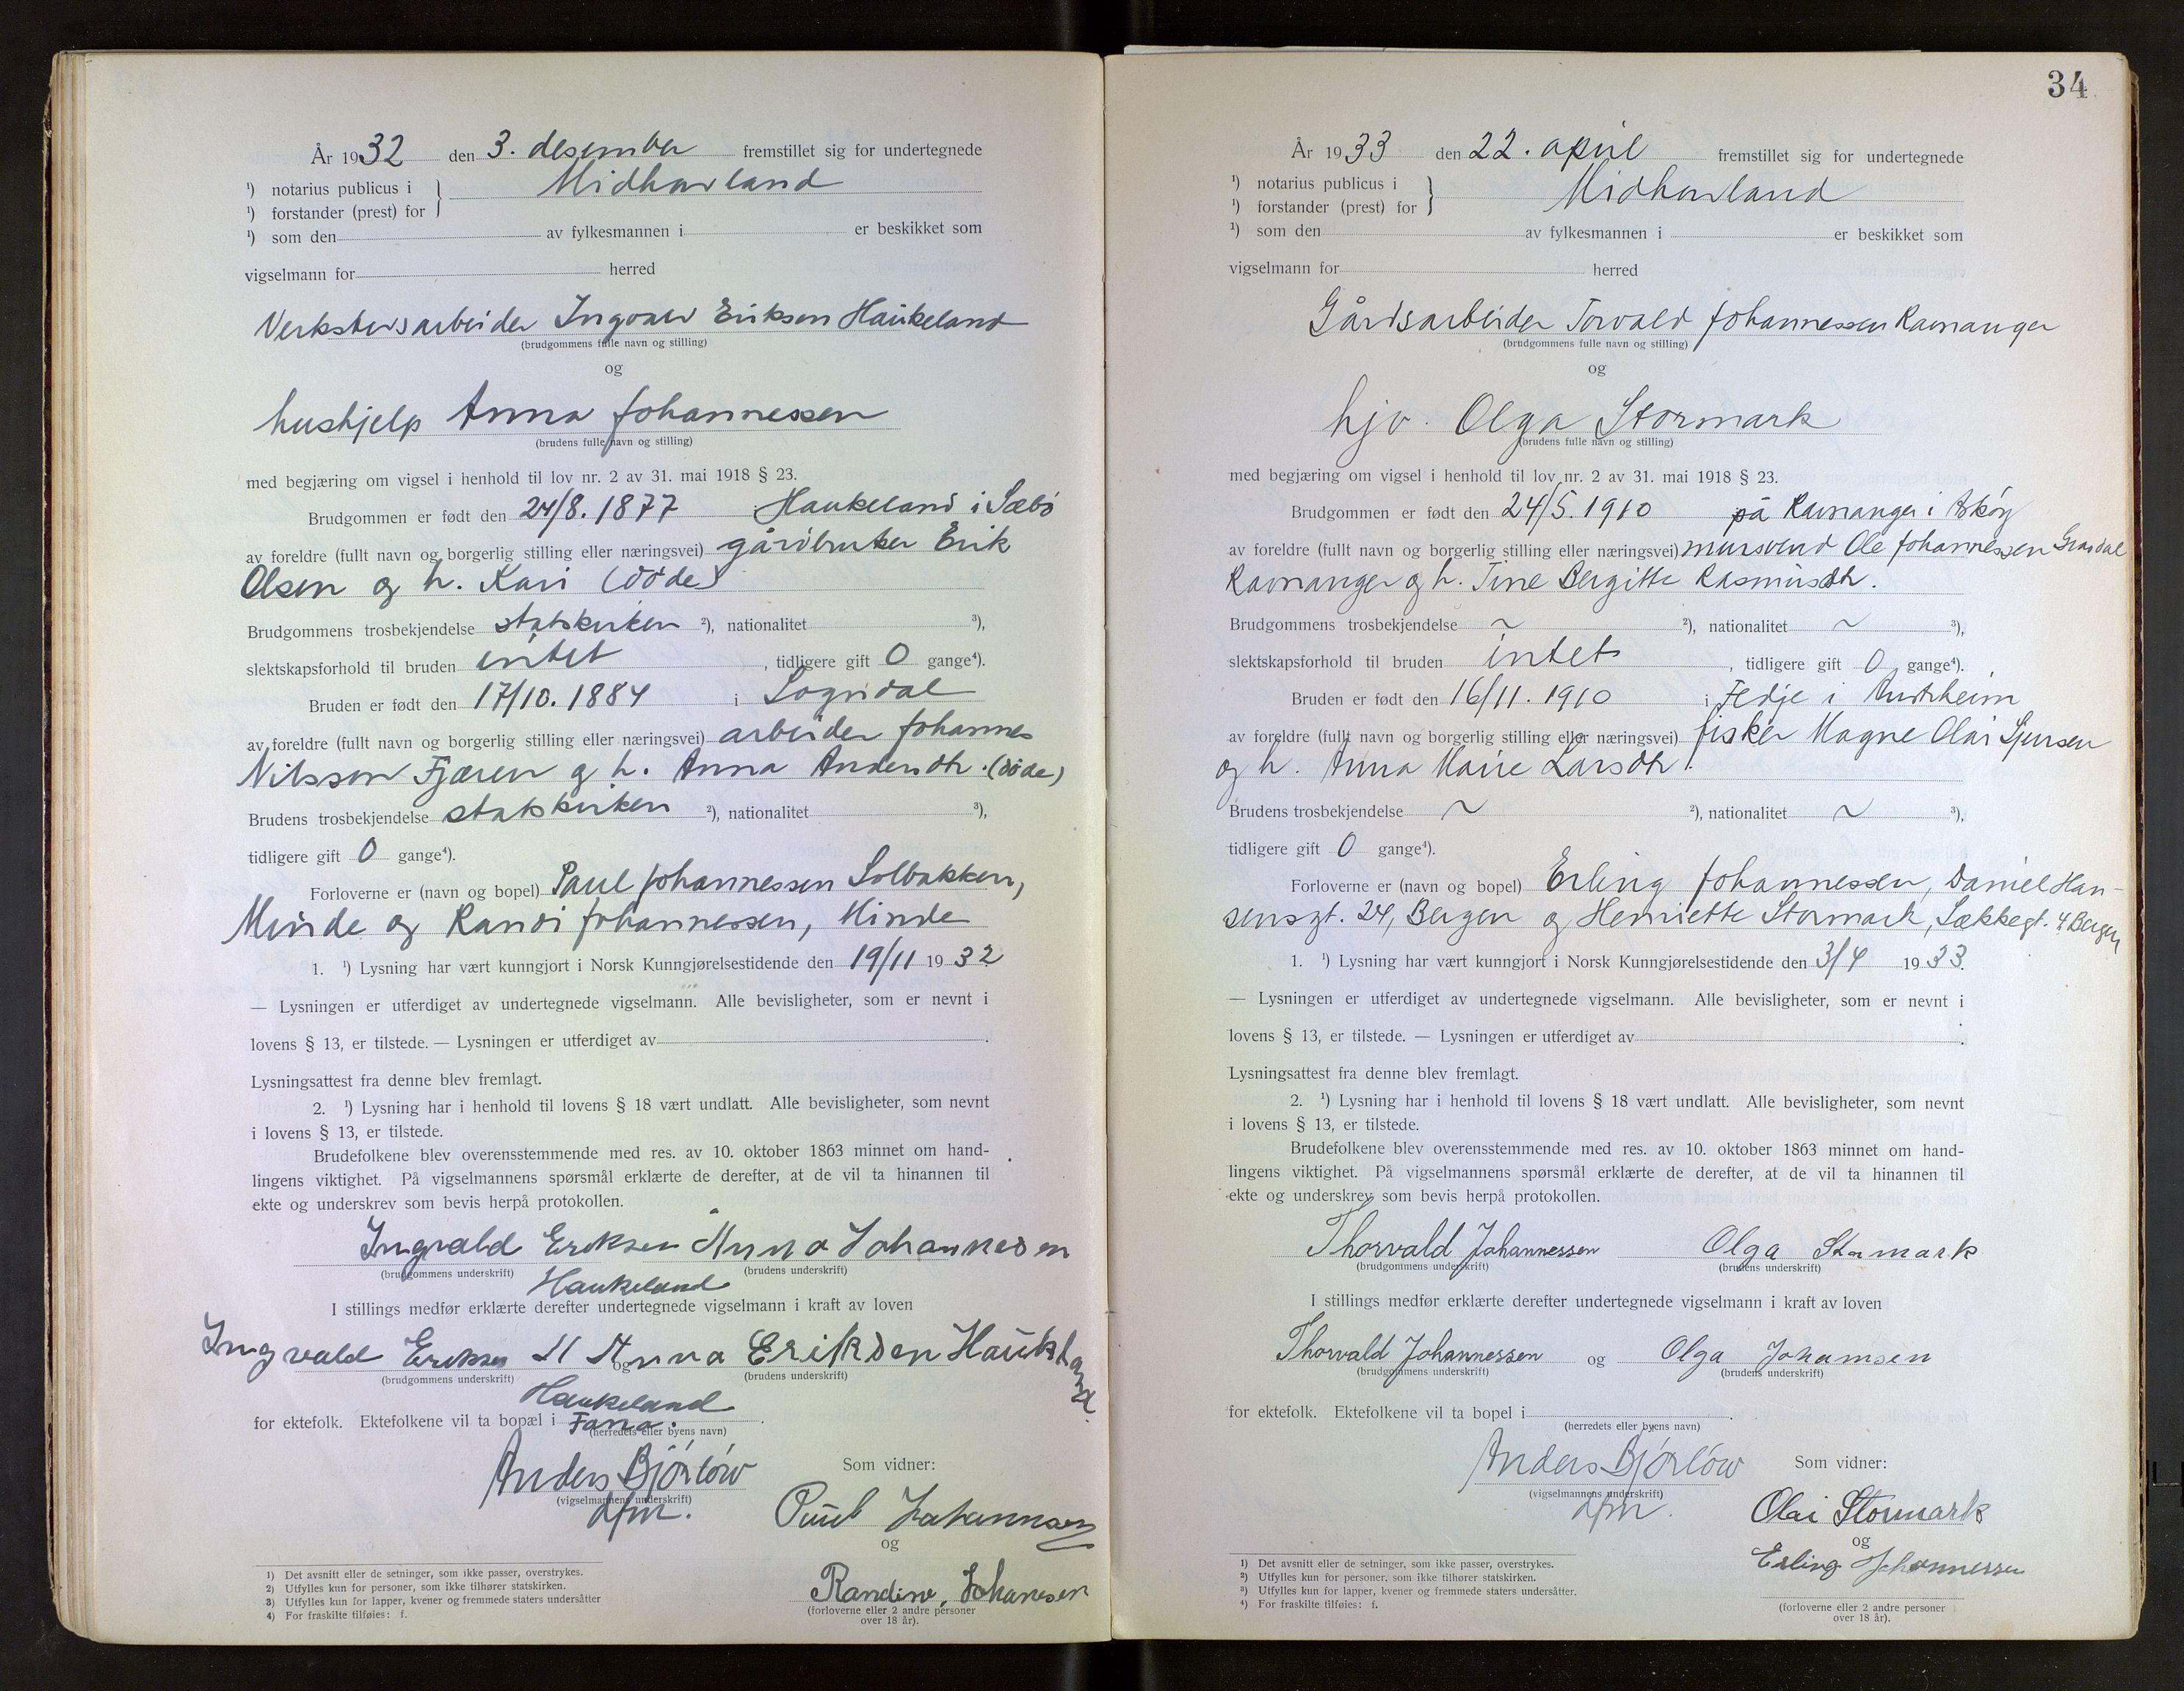 År 1932 den 3. desember fremstillet sig for undertegnede
¹) notarius publicus i } Midhorland
¹) forstander (prest) for
¹) som den av fylkesmannen i er beskikket som
vigselmann for herred
Verkstedsarbeider Ingvald Eriksen Haukeland
(brudgommens fulle navn og stilling)
og
hushjelp Anna Johannessen
(brudens fulle navn og stilling)
med begjæring om vigsel i henhold til lov nr. 2 av 31. mai 1918 § 23.
Brudgommen er født den 24/8. 1877 Haukeland i Sæbø
av foreldre (fullt navn og borgerlig stilling eller næringsvei) gårdbruker Erik
Olsen og h. Kari (døde)
Brudgommens trosbekjendelse statskirken ²), nationalitet ³),
slektskapsforhold til bruden intet, tidligere gift 0 gange⁴).
Bruden er født den 17/10. 1884 i Sogndal
av foreldre (fullt navn og borgerlig stilling eller næringsvei) arbeider Johannes
Nilsson Fjæren og h. Anna Andersdtr. (døde)
Brudens trosbekjendelse statskirken ²), nationalitet ³),
tidligere gift 0 gange⁴).
Forloverne er (navn og bopel) Paul Johannessen Solbakken,
Minde og Randi Johannessen, Minde
1. ¹) Lysning har vært kunngjort i Norsk Kunngjørelsestidende den 19/11 1932
— Lysningen er utferdiget av undertegnede vigselmann. Alle bevisligheter, som er nevnt i
lovens § 13, er tilstede. — Lysningen er utferdiget av .
Lysningsattest fra denne blev fremlagt.
2. ¹) Lysning har i henhold til lovens § 18 vært undlatt. Alle bevisligheter, som nevnt
i lovens § 13, er tilstede.
Brudefolkene blev overensstemmende med res. av 10. oktober 1863 minnet om hand-
lingens viktighet. På vigselmannens spørsmål erklærte de derefter, at de vil ta hinannen til
ekte og underskrev som bevis herpå protokollen.
Ingvald Eriksen Anna Johannesen
(brudgommens underskrift) Haukeland (brudens underskrift)
I stillings medfør erklærte derefter undertegnede vigselmann i kraft av loven
Ingvald Eriksen og Anna Eriksen Haukeland
(brudgommens underskrift) (brudens underskrift)
Haukeland
for ektefolk. Ektefolkene vil ta bopæl i Fana.
(herredets eller byens navn)
Anders Bjørlów Som vidner:
(vigselmannens underskrift)
dfm. Paul Johannsen
og
Randine Johansen
(forloverne eller 2 andre personer
over 18 år).
1) Det avsnitt eller de setninger, som ikke passer, overstrykes.
2) Utfylles kun for personer, som ikke tilhører statskirken.
3) Utfylles kun for lapper, kvener og fremmede staters undersåtter
4) For fraskilte tilføies: f.
34
År 1933 den 22. april fremstillet sig for undertegnede
¹) notarius publicus i } Midhorland
¹) forstander (prest) for
¹) som den av fylkesmannen i er beskikket som
vigselmann for herred
Gårdsarbeider Torvald Johannessen Ravnanger
(brudgommens fulle navn og stilling)
og
hjv. Olga Stormark
(brudens fulle navn og stilling)
med begjæring om vigsel i henhold til lov nr. 2 av 31. mai 1918 § 23.
Brudgommen er født den 24/5. 1910 på Ravnanger i Askøy
av foreldre (fullt navn og borgerlig stilling eller næringsvei) mursvend Ole Johannessen
Ravnanger og h. Tine Bergitte Rasmusdtr.
Brudgommens trosbekjendelse ~ ²), nationalitet ~ ³),
slektskapsforhold til bruden intet, tidligere gift 0 gange⁴).
Bruden er født den 16/11. 1910 i Fedje i Austrheim
av foreldre (fullt navn og borgerlig stilling eller næringsvei) fisker Magne Olai
og h. Anna Marie Larsdtr.
Brudens trosbekjendelse ~ ²), nationalitet ~ ³),
tidligere gift 0 gange⁴).
Forloverne er (navn og bopel) Erling Johannessen, Daniel Han-
sensgt. 24, Bergen og Henriette Stormark, Sækkegt. 4 Bergen
1. ¹) Lysning har vært kunngjort i Norsk Kunngjørelsestidende den 3/4 1933.
— Lysningen er utferdiget av undertegnede vigselmann. Alle bevisligheter, som er nevnt i
lovens § 13, er tilstede. — Lysningen er utferdiget av .
Lysningsattest fra denne blev fremlagt.
2. ¹) Lysning har i henhold til lovens § 18 vært undlatt. Alle bevisligheter, som nevnt
i lovens § 13, er tilstede.
Brudefolkene blev overensstemmende med res. av 10. oktober 1863 minnet om hand-
lingens viktighet. På vigselmannens spørsmål erklærte de derefter, at de vil ta hinannen til
ekte og underskrev som bevis herpå protokollen.
Thorvald Johannessen Olga Stormark
(brudgommens underskrift) (brudens underskrift)
I stillings medfør erklærte derefter undertegnede vigselmann i kraft av loven
Thorvald Johannessen og Olga Johansen
(brudgommens underskrift) (brudens underskrift)
for ektefolk. Ektefolkene vil ta bopel i .
(herredets eller byens navn)
Anders Bjørlów Som vidner:
(vigselmannens underskrift)
dfm. Olai Stormark
og
Erling Johannessen
(forloverne eller 2 andre personer
over 18 år).
1) Det avsnitt eller de setninger, som ikke passer, overstrykes.
2) Utfylles kun for personer, som ikke tilhører statskirken.
3) Utfylles kun for lapper, kvener og fremmede staters undersåtter.
4) For fraskilte tilføies: f.